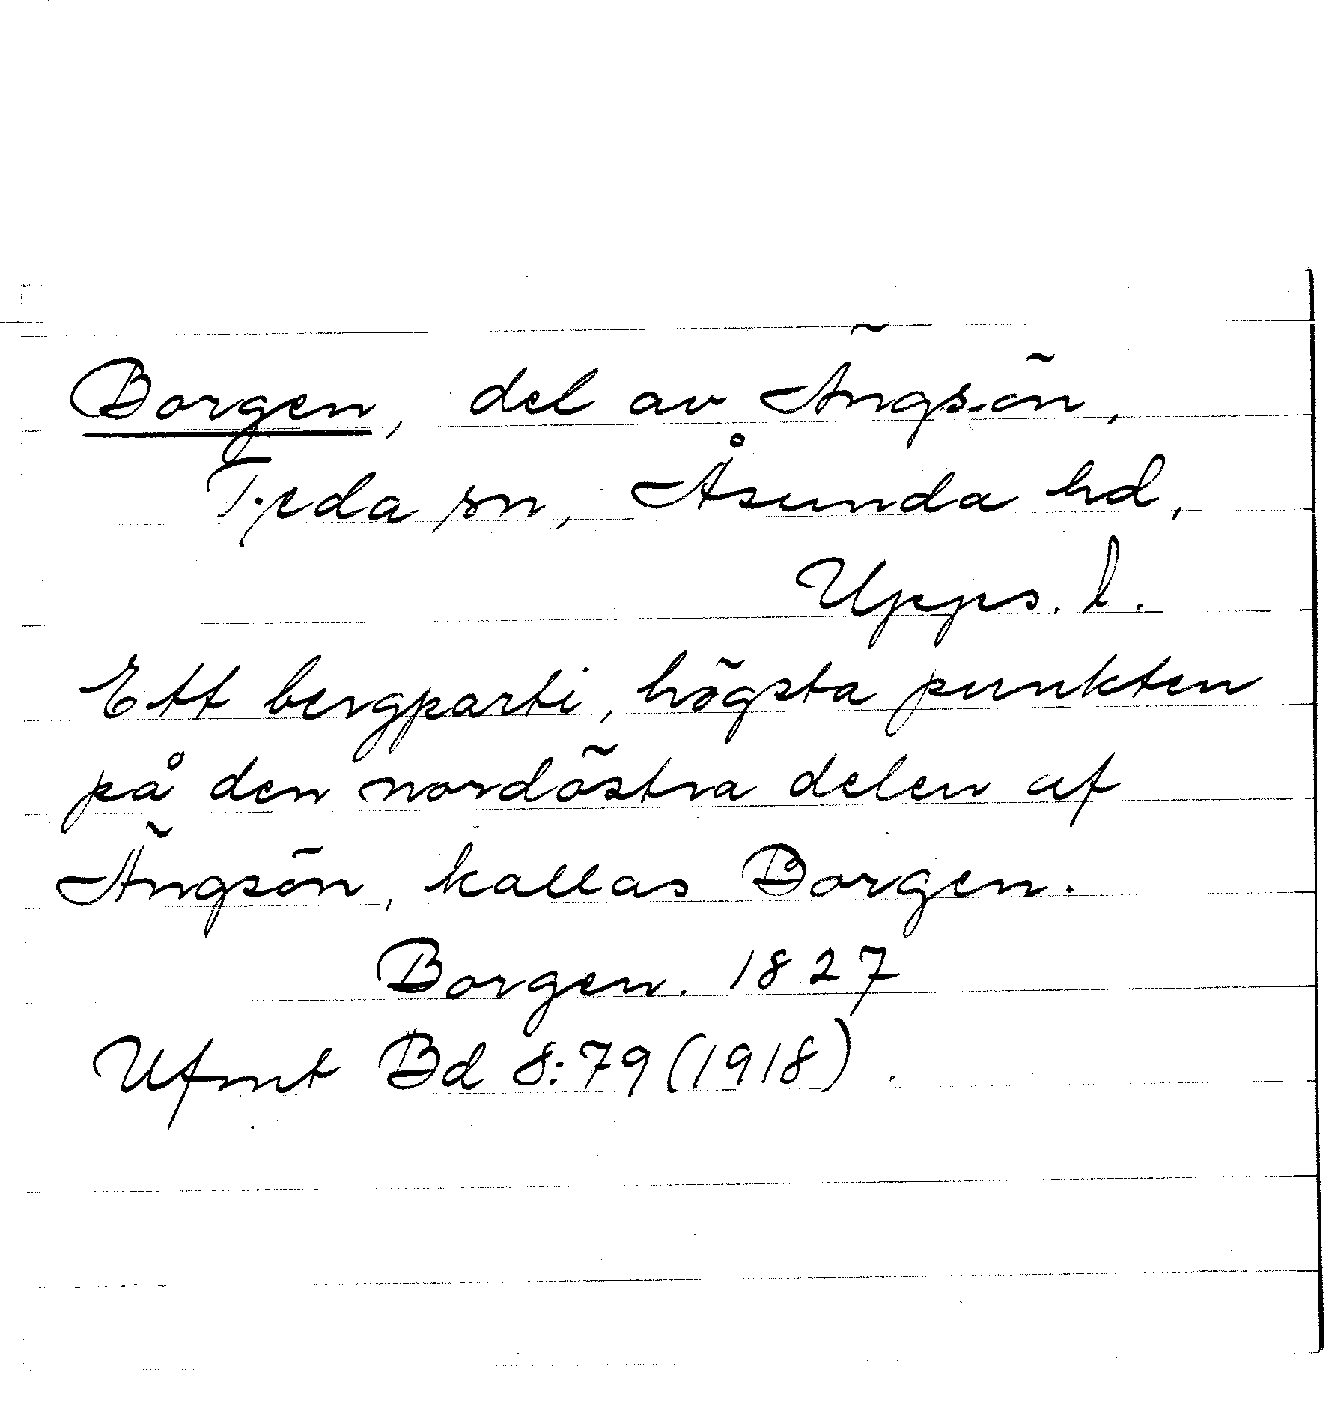 Borgen, del av Ängsön,
Tjeda sn, Åsunda hd,
Upps. l.
Ett bergparti, högsta punkten
på den nordöstra delen af
Ängsön, kallas Borgen.
Borgen. 1827
Ufmt Bd 8:79 (1918).